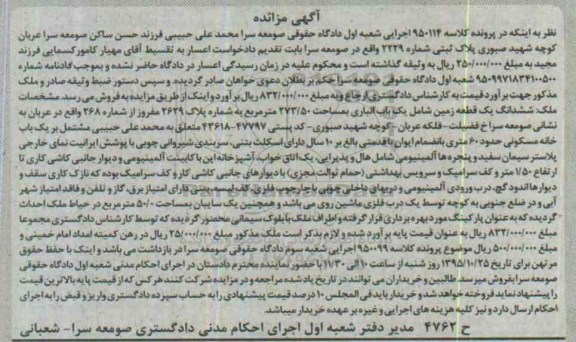 آگهی مزائده
نظر به اینکه در پرونده کلاسه ۹۵۰۱۱۴ اجرایی شعبه اول دادگاه حقوقی صومعه سرا محمد علی حبیبی فرزند حسن ساکن صومعه سرا عربان
کوچه شهید صبوری پلاک ثبتی شماره ۲۲۲۹ واقع در صومعه سرا بابت تقدیم دادخواست اعسار به تقسیط آقای مهیار کامور کسمایی فرزند
مجید به مبلغ ۲۵۰/۰۰۰/۰۰۰ ریال به وثیقه گذاشته است و محکوم علیه در زمان رسیدگی اعسار در دادگاه حاضر نشده و بموجب دادنامه شماره
۹۵۰۹۹۷۱۸۳۴۱۰۰۵۰۰ شعبه اول دادگاه حقوقی صومعه سرا حکم بر بطلان دعوی خواهان صادر گردیده و سپس دستور ضبط وثیقه صادر و ملک
مذکور جهت برآورد قیمت به کارشناس دادگستری ارجاع و به مبلغ ۸۳۲/۰۰۰/۰۰۰ ریال برآورد و اینک از طریق مزایده به فروش می رسد. مشخصات
ملک: ششدانگ یک قطعه زمین شامل یک باب انباری بمساحت ۲۷۳/۵۰ مترمربع به شماره پلاک ۲۶۲۹ مفروز از شماره ۲۶۸ واقع در عربان به
نشانی صومعه سرا خ فضیلت - فلکه عربان - کوچه شهید صبوری - کد پستی ۴۷۷۹۷-۴۳۶۱۸ متعلق به محمد علی حبیبی مشتمل بر یک باب
خانه مسکونی حدود ۶۰ متری بانضمام ایوان با قدمتی بالغ بر ۱۰ سال دارای اسکلت بتنی، سربندی شیروانی چوبی با پوشش ایرانیت نمای خارجی
پلاستر سیمان سفید و پنجره ها آلمینیومی شامل هال و پذیرایی، یک اتاق خواب، آشپزخانه اپن با کابینت آلمینیومی و دیوار جانبی کاشی کاری تا
ارتفاع ۱/۵۰ متر و کف سرامیک و سرویس بهداشتی (حمام توالت مجزی) با دیوارهای جانبی کاشی کار و کف سرامیک بوده که نازک کاری سقف و
دیوارها اندود گچ، درب ورودی آلمینیومی و دربهای داخلی چوبی با چارچوب فلزی، کف لیسه یعنی دارای امتیاز برق، گاز و تلفن و فاقد امتیاز شهر
آبی و در ضلع جنوبی به کوچه توسط یک درب فلزی ماشین روی می باشد و همچنین یک سایبان بمساحت ۵۰/۰ مترمربع در حیاط ملک احداث
گردیده که به عنوان پارکینگ مورد بهره برداری قرار گرفته و اطراف ملک با بلوک سیمانی محصور گردیده که توسط کارشناس دادگستری مجموعا
مبلغ ۸۳۲/۰۰۰/۰۰۰ ریال به عنوان قیمت پایه برآورد شده و لازم بذکر است ملک مذکور مبلغ ۲۵/۰۰۰/۰۰۰ ریال در رهن کمیته امداد امام خمینی و
مبلغ ۵۰۰/۰۰۰/۰۰۰ ریال موضوع پرونده کلاسه ۹۵۰۰۹۹ اجرایی شعبه سوم دادگاه حقوقی صومعه سرا در بازداشت می باشد و اینک با حفظ حقوق
مرتهن برای تاریخ ۱۳۹۵/۱۰/۲۵ روز شنبه از ساعت ۱۰ الی ۱۱/۳۰ با حضور نماینده محترم دادستان در اجرای احکام مدنی شعبه اول دادگاه حقوقی
صومعه سرا بفروش میرسد طالبین و خریداران می توانند در تاریخ یاد شده مراجعه و در مزایده شرکت کنند هر کس که از قیمت پایه بالاترین قیمت
را پیشنهاد نماید فروخته خواهد شد و خریدار باید فی المجلس ۱۰ درصد قیمت پیشنهادی را به حساب سپرده دادگستری واریز و قبض را به اجرای
احکام ارسال دارد و نیز کلیه هزینه های اجرایی و غیره بر عهده خریدار میباشد.
ح ۴۷۶۲ مدیر دفتر شعبه اول اجرای احکام مدنی دادگستری صومعه سرا - شعبانی